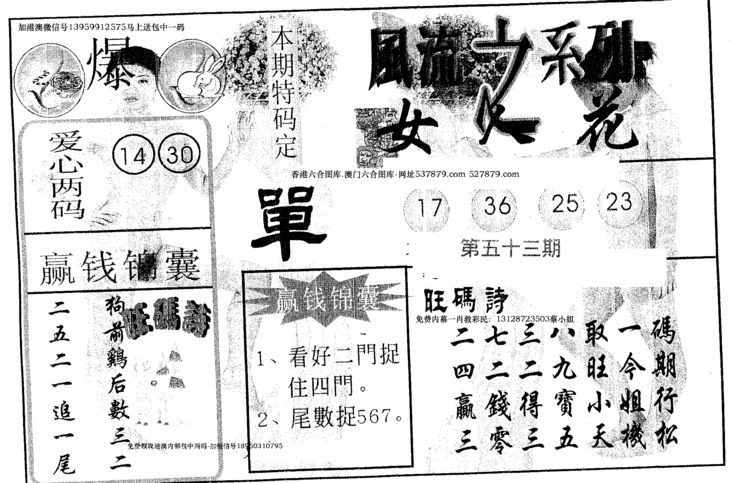 加港澳微信号13959912575马上送包中一码
爆
本期特码定
單
風流之系列
女人花
爱心两码
14 30
香港六合图库.澳门六合图库-网址537879.com 527879.com
17 36 25 23
第五十三期
赢钱锦囊
旺碼詩
狗前鷄后數三二
二五二一追一尾
赢钱锦囊
1、看好二門捉
住四門。
2、尾數捉567。
旺碼詩
免费内幕一肖救彩民：13128723503蔡小姐
碼期行松
一今姐機
取旺小天
八九寶五
三二得三
七二錢零
二四贏三